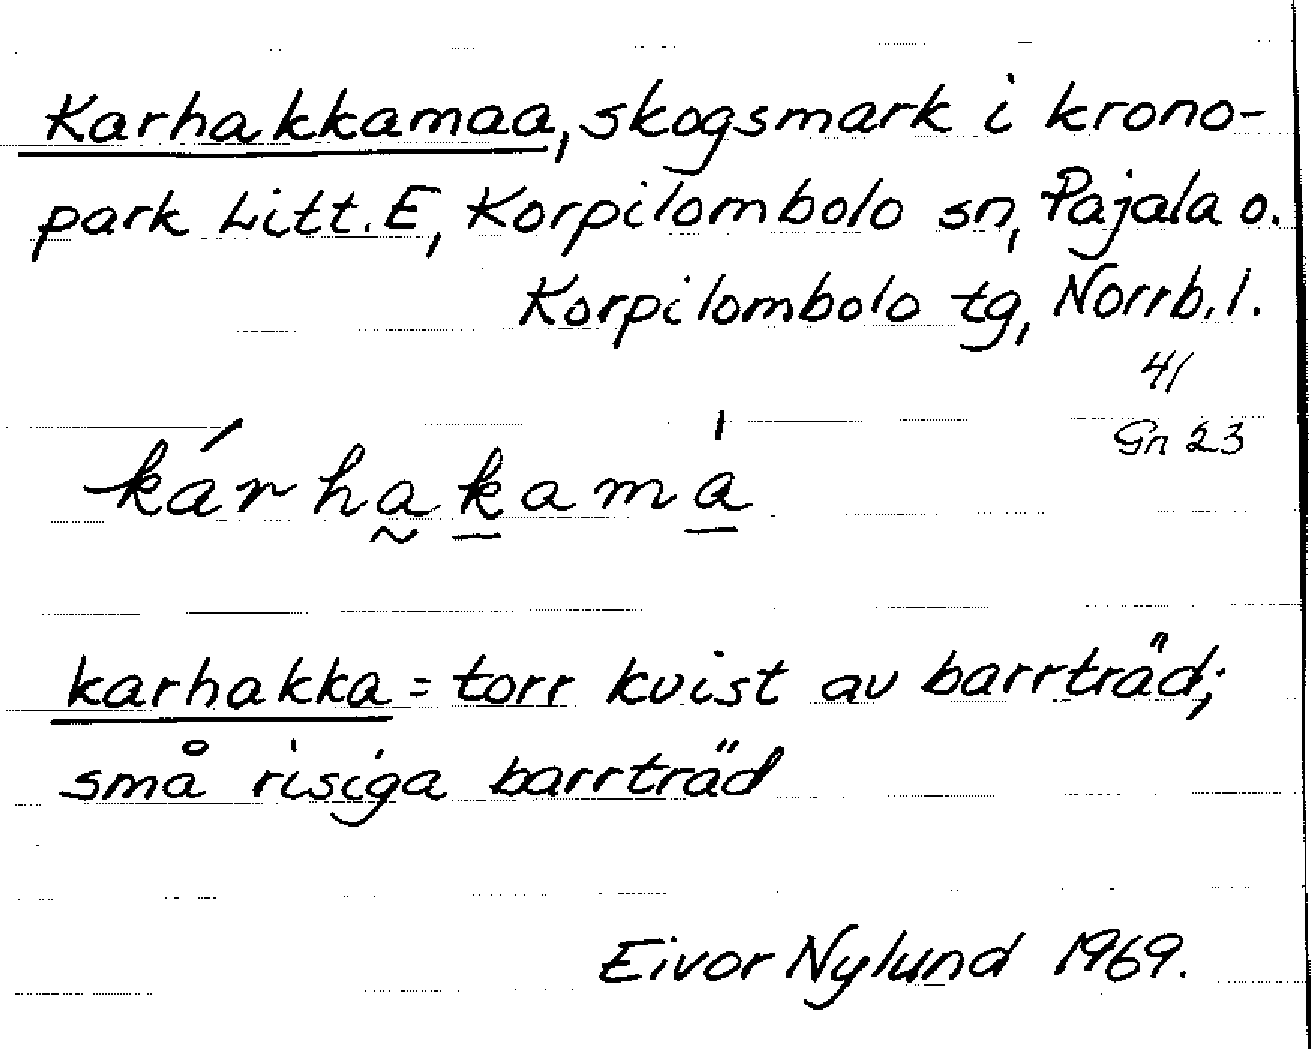 Karhakkamaa, skogsmark i krono-
park Litt. E, Korpilombolo sn, Pajala o.
Korpilombolo tg, Norrb. l.
41
Gn 23
kárha̰k̲amá̲
karhakka = torr kvist av barrträd;
små risiga barrträd
Eivor Nylund 1969.